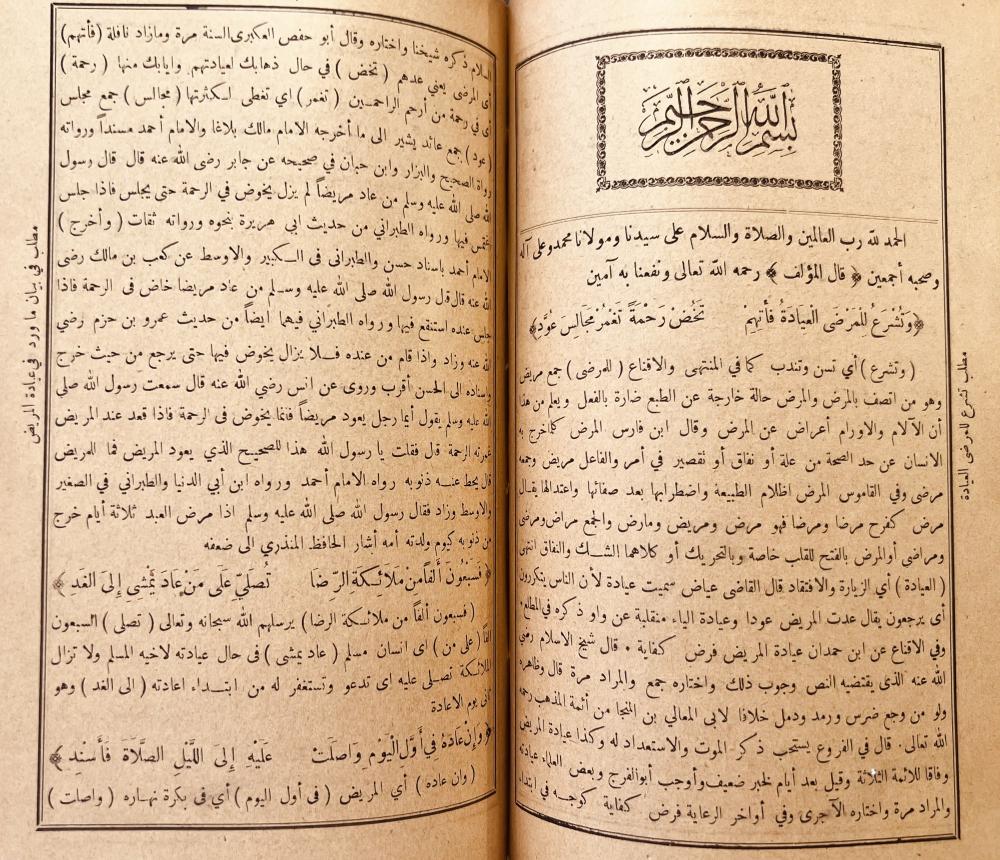 بسم الله الرحمن الرحيم
الحمد لله رب العالمين والصلاة والسلام على سيدنا ومولانا محمد وعلى آله
وصحبه أجمعين ﴿ قال المؤلف ﴾ رحمه الله تعالى ونفعنا به آمين
﴿وَتُشْرَعُ لِلْمَرْضَى الْعِيَادَةُ فَأْتِهِمْ تَخُضْ رَحْمَةً تَغْمُرْ مَجَالِسَ عُوَّدِ﴾
( وتشرع ) أي تسن وتندب كما في المنتهى والاقناع ( للمرضى ) جمع مريض
وهو من اتصف بالمرض والمرض حالة خارجة عن الطبع ضارة بالفعل ويعلم من هذا
أن الآلام والاورام أعراض عن المرض وقال ابن فارس المرض كلما خرج به
الانسان عن حد الصحة من علة أو نفاق أو تقصير في أمر والفاعل مريض وجمعه
مرضى وفي القاموس المرض اظلام الطبيعة واضطرابها بعد صفائها واعتدالها يقال
مرض كفرح مرضا ومرضا فهو مرض ومريض ومارض والجمع مراض ومرضى
ومراضى أو المرض بالفتح للقلب خاصة وبالتحريك أو كلاهما الشك والنفاق انتهى
( العيادة ) أي الزيارة والافتقاد قال القاضي عياض سميت عيادة لأن الناس يتكررون
أى يرجعون يقال عدت المريض عودا وعيادة الياء منقلبة عن واو ذكره في المطلع.
وفي الاقناع عن ابن حمدان عيادة المريض فرض كفاية . قال شيخ الاسلام رضي
الله عنه الذى يقتضيه النص وجوب ذلك واختاره جمع والمراد مرة قال وظاهره
ولو من وجع ضرس ورمد ودمل خلافا لابى المعالي بن المنجا من أئمة المذهب رحمه
الله تعالى. قال في الفروع يستحب ذكر الموت والاستعداد له وكذا عيادة المريض
وفاقا للائمة الثلاثة وقيل بعد أيام لخبر ضعيف وأوجب أبو الفرج وبعض العلماء عيادته
والمراد مرة واختاره الآجرى وفي أواخر الرعاية فرض كفاية كوجه في ابتداء
مطلب تشرع للمرضى العيادة
السلام ذكره شيخنا واختاره وقال أبو حفص العكبرى السنة مرة ومازاد نافلة ( فأتهم)
أى المرضى يعني عدهم ( تخض ) في حال ذهابك لعيادتهم وايابك منها ( رحمة )
أى في رحمة من أرحم الراحمين ( تغمر ) اي تغطى لكثرتها ( مجالس ) جمع مجلس
( عود ) جمع عائد يشير الى ما أخرجه الامام مالك بلاغا والامام أحمد مسنداً ورواته
رواة الصحيح والبزار وابن حبان في صحيحه عن جابر رضى الله عنه قال قال رسول
الله صلى الله عليه وسلم من عاد مريضاً لم يزل يخوض في الرحمة حتى يجلس فاذا جلس
غمس فيها ورواه الطبراني من حديث ابي هريرة بنحوه ورواته ثقات ( وأخرج )
الامام أحمد باسناد حسن والطبرانى فى الكبير والاوسط عن كعب بن مالك رضى
الله عنه قال قال رسول الله صلى الله عليه وسلم من عاد مريضا خاض في الرحمة فاذا
جلس عنده استنقع فيها ورواه الطبراني فيهما أيضاً من حديث عمرو بن حزم رضي
الله عنه وزاد واذا قام من عنده فلا يزال يخوض فيها حتى يرجع من حيث خرج
واسناده الى الحسن أقرب وروى عن انس رضى الله عنه قال سمعت رسول الله صلى
الله عليه وسلم يقول أيما رجل يعود مريضاً فانما يخوض فى الرحمة فاذا قعد عند المريض
غمرته الرحمة قال فقلت يا رسول الله هذا للصحيح الذي يعود المريض فما للمريض
قال يحط عنه ذنوبه رواه الامام أحمد ورواه ابن أبي الدنيا والطبراني في الصغير
والاوسط وزاد فقال رسول الله صلى الله عليه وسلم اذا مرض العبد ثلاثة أيام خرج
من ذنوبه كيوم ولدته أمه أشار الحافظ المنذري الى ضعفه
﴿ فَسَبْعُونَ أَلْفًا مِنْ مَلَائِكَةِ الرِّضَا تُصَلِّي عَلَى مَنْ عَادَ يَمْشِي إِلَى الْغَدِ ﴾
( فسبعون ألفاً من ملائكة الرضا ) يرسلهم الله سبحانه وتعالى ( تصلى ) السبعون
الفا ( على من ) اى انسان مسلم ( عاد يمشى ) فى حال عيادته لاخيه المسلم ولا تزال
الملائكة تصلى عليه اى تدعو وتستغفر له من ابتداء اعادته ( الى الغد ) وهو
ثانى يوم الاعادة
﴿ وَإِنْ عَادَهُ فِي أَوَّلِ الْيَوْمِ وَاصَلَتْ عَلَيْهِ إِلَى اللَّيْلِ الصَّلَاةَ فَأَسْنِدِ ﴾
( وان عاده ) أي المريض ( فى أول اليوم ) أي فى بكرة نهاره ( واصلت )
مطلب في بيان ما ورد في عيادة المريض